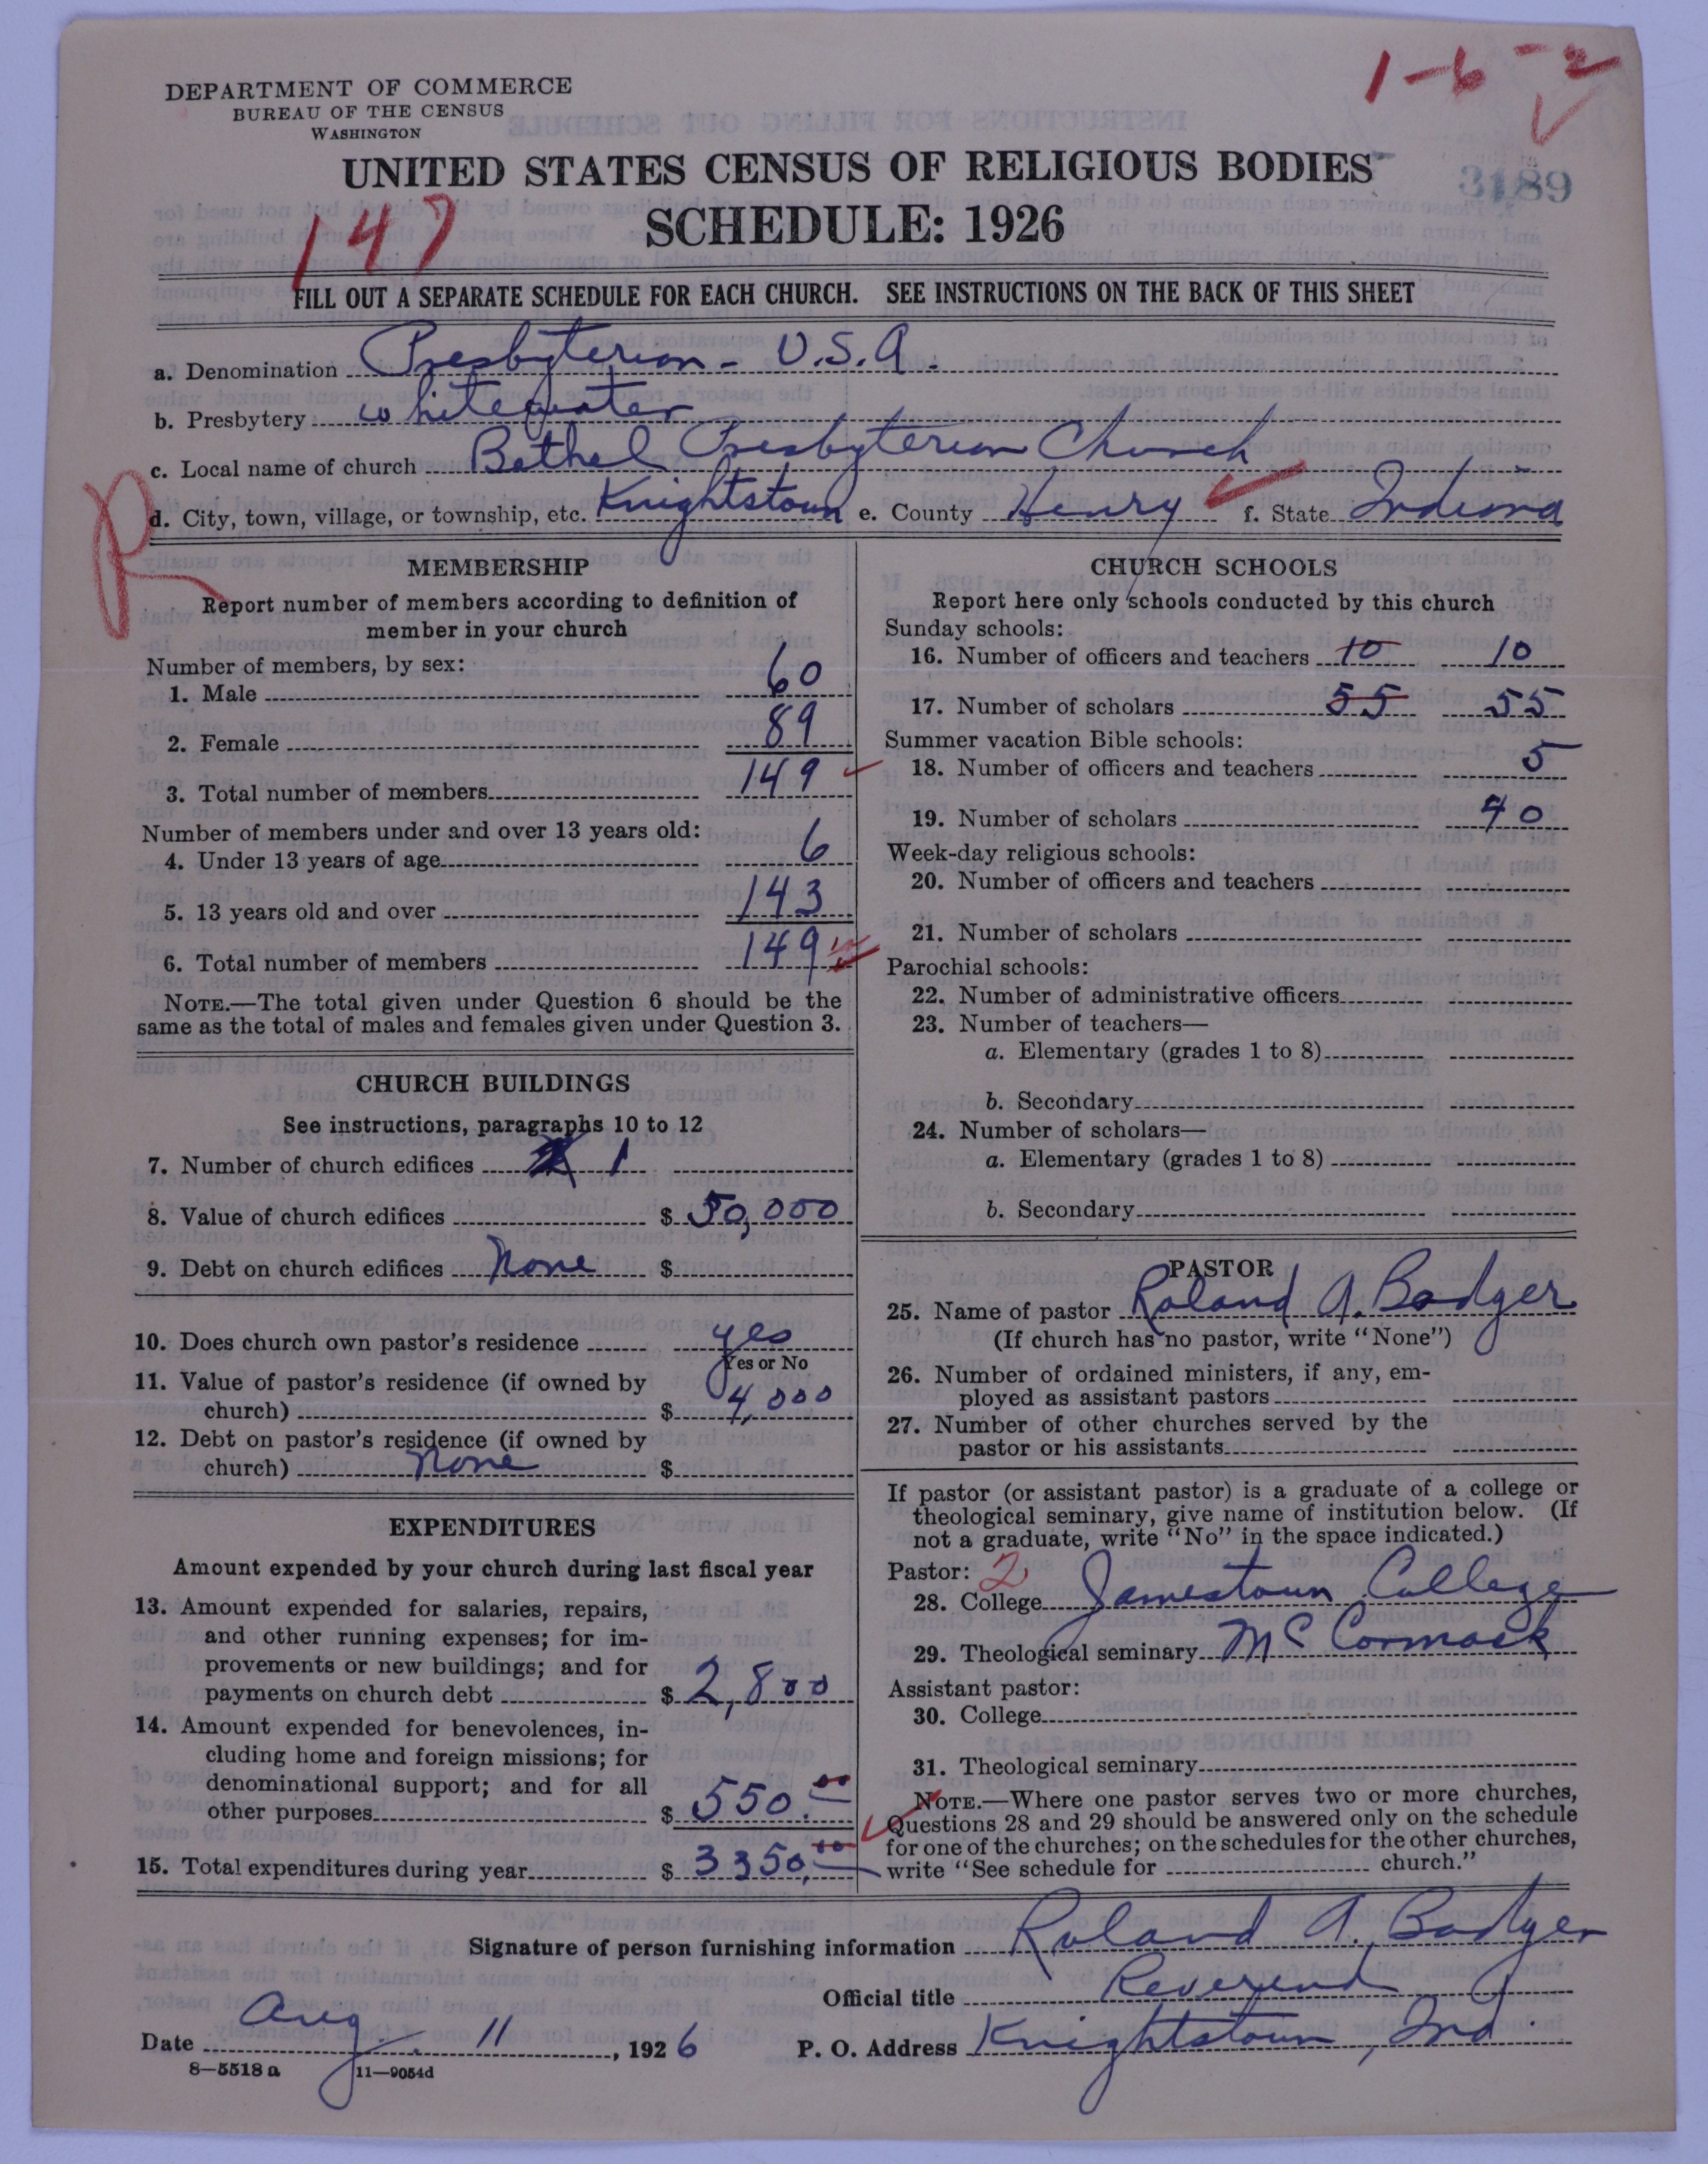 1-6-2
DEPARTMENT OF COMMERCE
BUREAU OF THE CENSUS
WASHINGTON
UNITED STATES CENSUS OF RELIGIOUS BODIES
3189
147
SCHEDULE: 1926
FILL OUT A SEPARATE SCHEDULE FOR EACH CHURCH. SEE INSTRUCTIONS ON THE BACK OF THIS SHEET
a. Denomination Presbyterian - U.S.A.
b. Presbytery Whitewater
c. Local name of church Bethel Presbyterian Church
R
d. City, town, village, or township, etc. Knightstown e. County Henry f. State Indiana
MEMBERSHIP
Report number of members according to definition of
member in your church
Number of members, by sex:
1. Male 60
2. Female 89
3. Total number of members 149
Number of members under and over 13 years old:
4. Under 13 years of age 6
5. 13 years old and over 143
6. Total number of members 149
NOTE.—The total given under Question 6 should be the
same as the total of males and females given under Question 3.
CHURCH BUILDINGS
See instructions, paragraphs 10 to 12
7. Number of church edifices 1
8. Value of church edifices $ 50,000
9. Debt on church edifices None $
10. Does church own pastor's residence yes
Yes or No
11. Value of pastor's residence (if owned by
church) $ 4,000
12. Debt on pastor's residence (if owned by
church) None $
EXPENDITURES
Amount expended by your church during last fiscal year
13. Amount expended for salaries, repairs,
and other running expenses; for im-
provements or new buildings; and for
payments on church debt $ 2,800
14. Amount expended for benevolences, in-
cluding home and foreign missions; for
denominational support; and for all
other purposes $ 550.00
15. Total expenditures during year $ 3350.00
CHURCH SCHOOLS
Report here only schools conducted by this church
Sunday schools:
16. Number of officers and teachers 10 10
17. Number of scholars 55 55
Summer vacation Bible schools:
18. Number of officers and teachers 5
19. Number of scholars 40
Week-day religious schools:
20. Number of officers and teachers
21. Number of scholars
Parochial schools:
22. Number of administrative officers
23. Number of teachers—
a. Elementary (grades 1 to 8)
b. Secondary
24. Number of scholars—
a. Elementary (grades 1 to 8)
b. Secondary
PASTOR
25. Name of pastor Roland A. Badger
(If church has no pastor, write "None")
26. Number of ordained ministers, if any, em-
ployed as assistant pastors
27. Number of other churches served by the
pastor or his assistants
If pastor (or assistant pastor) is a graduate of a college or
theological seminary, give name of institution below. (If
not a graduate, write "No" in the space indicated.)
Pastor: 2
28. College Jamestown College
29. Theological seminary McCormack
Assistant pastor:
30. College
31. Theological seminary
NOTE.—Where one pastor serves two or more churches,
Questions 28 and 29 should be answered only on the schedule
for one of the churches; on the schedules for the other churches,
write "See schedule for church."
Signature of person furnishing information Roland A. Badger
Official title Reverend
Date Aug. 11, 1926 P. O. Address Knightstown, Ind.
8—5518a 11—9054d